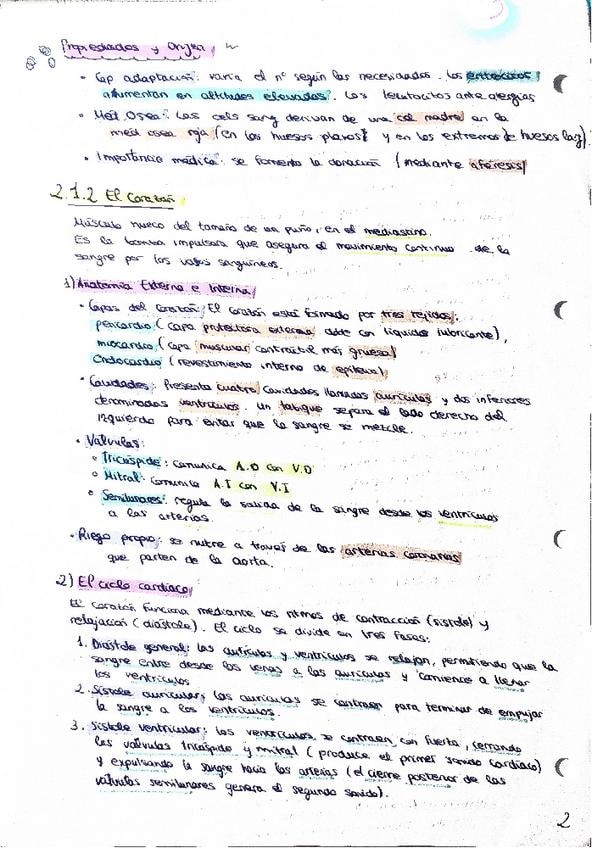 Propiedades y Origen
• Cap adaptación: varía el nº según las necesidades. Los eritrocitos
aumentan en altitudes elevadas. Los leucocitos ante alergias
• Med Osea: Las cels sang derivan de una cel madre en la
med osea roja (en los huesos planos y en los extremos de huesos larg).
• Importancia médica: se fomenta la donación (mediante aféresis)
2.1.2 El Corazón
Músculo hueco del tamaño de un puño, en el mediastino.
Es la bomba impulsora que asegura el movimiento continuo de la
sangre por los vasos sanguíneos.
1) Anatomía Externa e Interna
• Capas del corazón: El corazón está formado por tres tejidos:
pericardio (capa protectora externa doble con líquido lubricante),
miocardio (capa muscular contráctil más gruesa)
Endocardio (revestimiento interno de epitelio)
• Cavidades: Presenta cuatro cavidades llamadas aurículas y dos inferiores
denominadas ventrículos. Un tabique separa el lado derecho del
izquierdo para evitar que la sangre se mezcle.
• Válvulas:
• Tricúspide: comunica A.D con V.D
• Mitral: comunica A.I con V.I
• Semilunares: regula la salida de la sangre desde los ventrículos
a las arterias.
• Riego propio: se nutre a través de las arterias coronarias
que parten de la aorta.
2) El ciclo cardíaco
El corazón funciona mediante los ritmos de contracción (sístole) y
relajación (diástole). El ciclo se divide en tres fases:
1. Diástole general: las aurículas y ventrículos se relajan, permitiendo que la
sangre entre desde las venas a las aurículas y comience a llenar
los ventrículos
2. Sístole auricular: las aurículas se contraen para terminar de empujar
la sangre a los ventrículos.
3. Sístole ventricular: los ventrículos se contraen con fuerza, cerrando
las válvulas tricúspide y mitral (produce el primer sonido cardíaco)
y expulsando la sangre hacia las arterias (el cierre posterior de las
válvulas semilunares genera el segundo sonido).
2